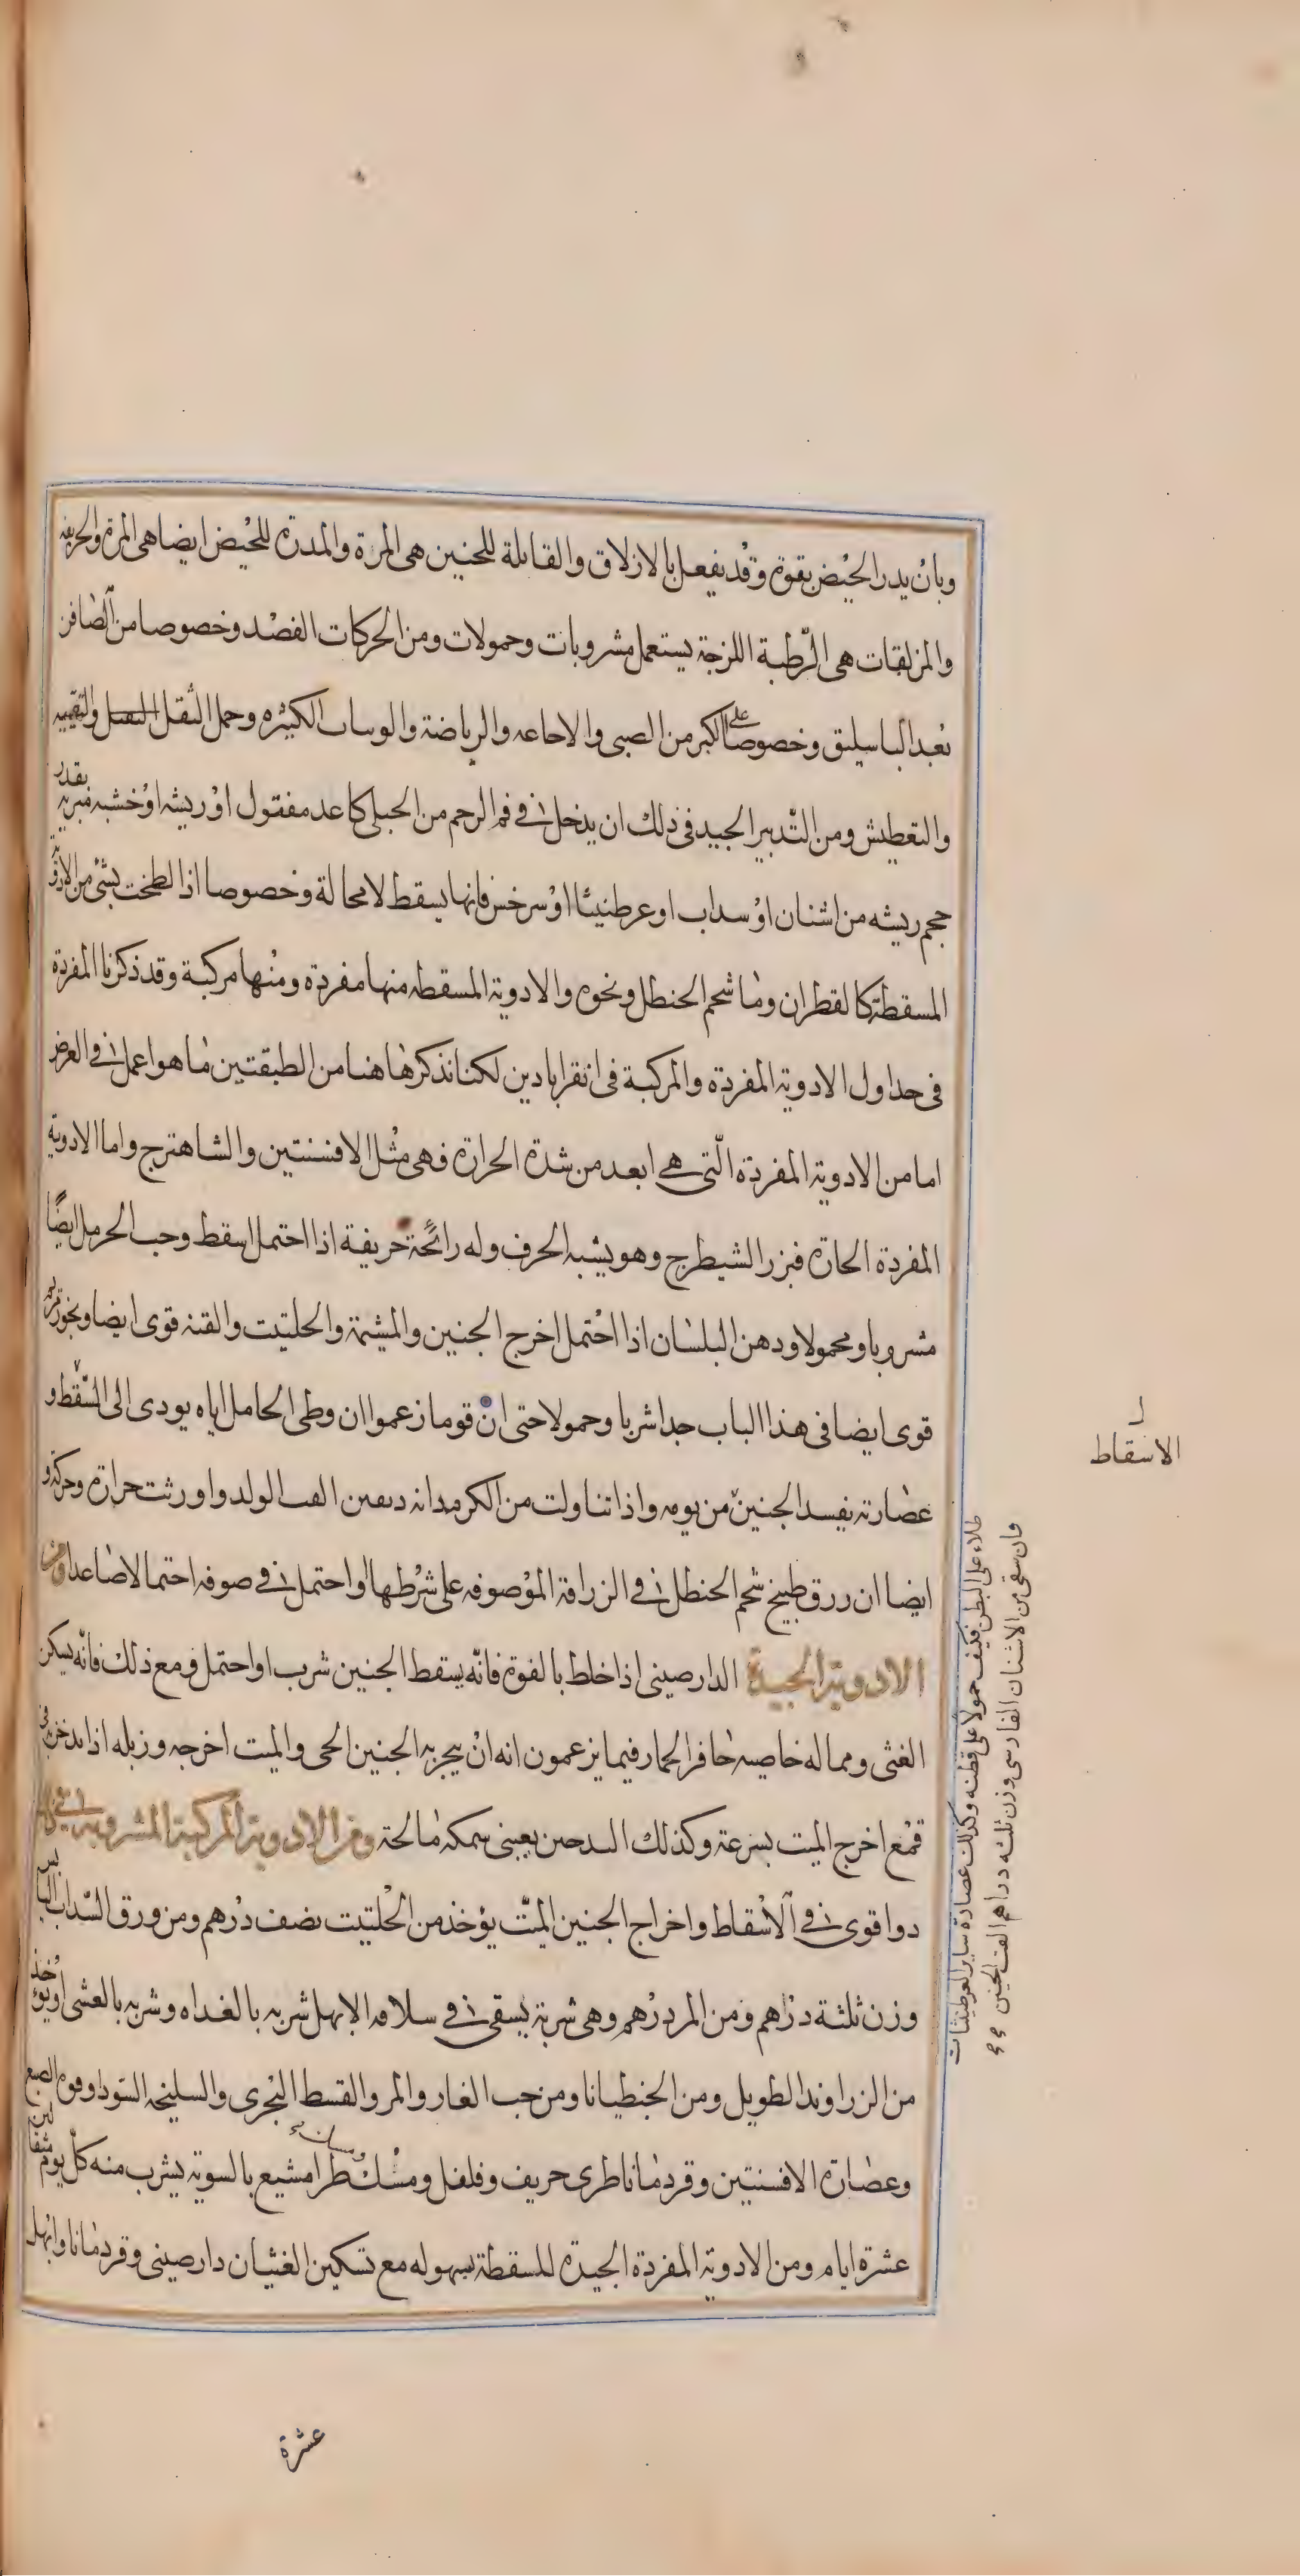 وبان يدر الحيض بقوة وقد يفعل بالازلاق والقابلة للجنين هى المرة والمدرة للحيض ايضا هى المرة والحريفه
والمزلقات هى الرّطبة اللزجة يستعمل مشروبات وحمولات ومن الحركات الفصد وخصوصا من الصافن
بعد الباسليق وخصوصا على الكبر من الصبى والاجاعه والرياضة والوسات الكثيره وحمل الثقل والتقييه
والتعطيش ومن التّدبير الجيد فى ذلك ان يدخل فى فم الرحم من الحبلى كاعد مفتول او ريشه او خشبه مبريه بقدر
حجم ريشه من اشنان او سداب او عرطنيثا او سرخس فانها يسقط لا محالة وخصوصا اذا لطخت بشئ من الادوية
المسقطة كالقطران وما شحم الحنطل ونحوه والادوية المسقطه منها مفردة ومنها مركبة وقد ذكرنا المفردة
فى جداول الادوية المفردة والمركبة فى انقرابادين لكنا نذكر هاهنا من الطبقتين ما هو اعمل فى الغرض
اما من الادوية المفردة الّتى هى ابعد من شدة الحرارة فهى مثل الافسنتين والشاهترج واما الادوية
المفردة الحارة فبزر الشيطرج وهو يشبه الحرف وله رائحة حريفة اذا احتمل اسقط وحب الحرمل ايضًا
مشروبا ومحمولا ودهن البلسان اذا احتمل اخرج الجنين والمشيمة والحلتيت والقنه قوى ايضا وبخور مريم
قوى ايضا فى هذا الباب جدا شربا وحمولا حتى ان قوما زعموا ان وطى الحامل اياه يودى الى السّقط و
عصارته يفسد الجنين من يومه واذا تناولت من الكرمدانه القت الولد واورثت حرارة وحركة و
ايضا ان زرق طبيخ شحم الحنطل فى الزراقة الموصوفه على شرطها او احتمل فى صوفه احتمالا صاعدا ومن
الادوية الجيدة الدارصينى اذا خلط بالفوة فانّه يسقط الجنين شرب او احتمل ومع ذلك فانّه يسكن
الغثى ومما له خاصيه حافر الحمار فيما يزعمون انه ان يبخر به الجنين الحى والميت اخرجه وزبله اذا تدخن به فى
قمع اخرج الميت بسرعة وكذلك التدخين بعينى سمكه مالحة ومن الادوية المركبة المشروبة فى ذلك
دوا قوى فى الاسقاط واخراج الجنين الميّت يؤخذ من الحلتيت نصف درهم ومن ورق السّداب اليابس
وزن ثلثة دراهم ومن المر درهم وهى شربة يسقى فى سلاقه الابهل شربه بالغداه وشربه بالعشى او يؤخذ
من الزراوند الطويل ومن الجنطيانا ومن حب الغار والمر والقسط البحرى والسليخه السودا وفوه الصبغ
وعصارة الافسنتين وقردمانا طرى حريف وفلفل ومشكطرامشيع بالسوية يشرب منه كل يوم مثقالين
عشرة ايام ومن الادوية المفردة الجيدة للمسقطة بسهوله مع تسكين الغثيان دارصينى وقردمانا وابهل
عشرة
الاسقاط
طلاء على البطن فكيف حمولا على قطنه وكذلك عصارة ساير العرطنيثات
فان سقى من الاشنان الفارسى وزن ثلثه دراهم القت الجنين